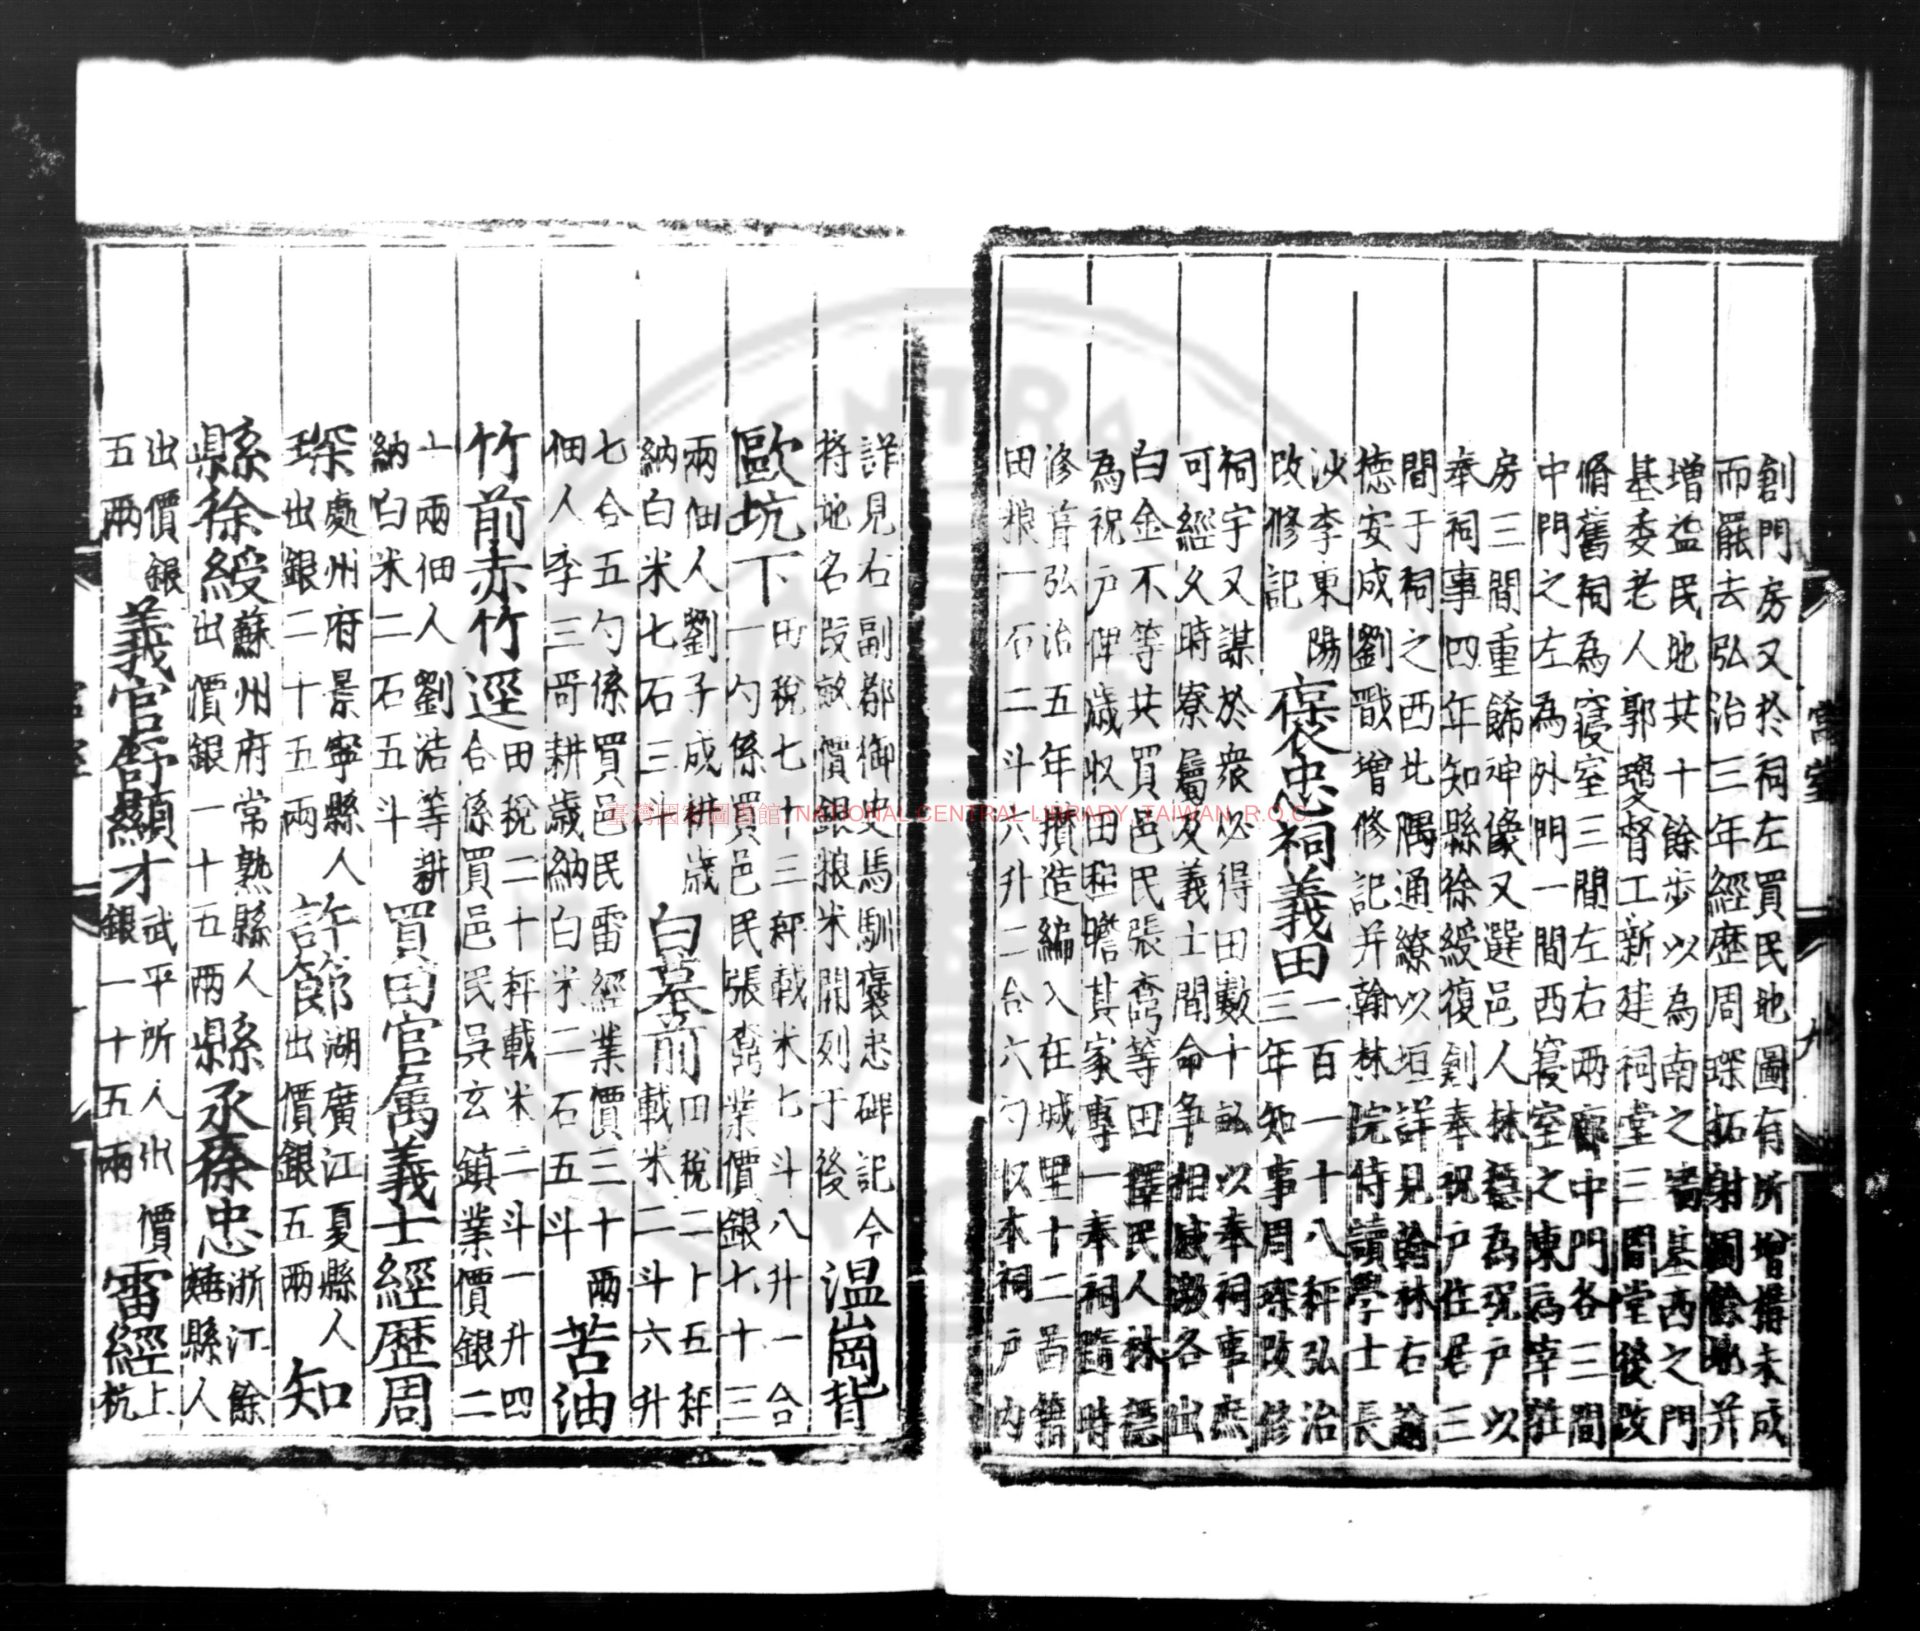 創門房又於祠左買民地圖有所增搆未成
而罷去弘治三年經歷周琛拓射圃餘地并
增益民地共十餘步以為南之啚基西之門
基委老人郭瓊督工新建祠堂三間堂後改
脩舊祠為寢室三間左右兩廊中門各三間
中門之左為外門一間西寢室之東為宰牲
房三間重餙神像又選邑人林穩為祝户以
奉祠事四年知縣徐綬復創奉祝户住居三
間于祠之西北隅通繚以垣詳見翰林右諭
德安成劉戩增修記并翰林院侍讀學士長
沙李東陽
改修記
褒忠祠義田
一百一十八秤弘治
三年知事周琛改修
祠宇又謀於衆必得田數十畝以奉祠事庶
可經久時寮屬及義士間命爭相感激各出
白金不等共買邑民張喬等田擇民人林穩
為祝户俾歲收田租贍其家專一奉祠隨時
修葺弘治五年攢造編入在城里十二啚籍
田粮一石二斗六升二合六勺以本祠户内
詳見右副都御史馬馴褒忠碑記今
將地名段畝價銀粮米開列于後
温崗背
歐坑下
田稅七十三秤載米七斗八升一合
一勺係買邑民張喬業價銀七十三
兩佃人劉子成耕歲
納白米七石三斗
白墓前
田稅二十五秤
載米二斗六升
七合五勺係買邑民雷經業價三十兩
佃人李三哥耕歲納白米二石五斗
苦油
竹前赤竹逕
田稅二十秤載米二斗一升四
合係買邑民吳玄鎮業價銀二
十兩佃人劉浩等耕
納白米二石五斗
買田官属義士經歷周
琛
處州府景寧縣人
出銀二十五兩
許節
湖廣江夏縣人
出價銀五兩
知
縣徐綬
蘇州府常熟縣人
出價銀一十五兩
縣丞徐忠
浙江餘
姚縣人
出價銀
五兩
義官舒顯才
武平所人出價
銀一十五兩
雷經
上
杭
臺灣國家圖書館, NATIONAL CENTRAL LIBRARY, TAIWAN, R.O.C.